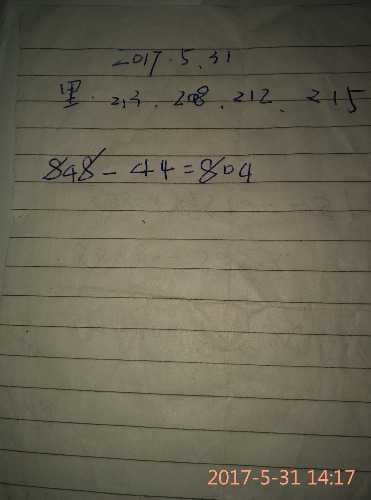 2017.5.31
里. 213. 208. 212. 215
848-44=804
2017-5-31 14:17